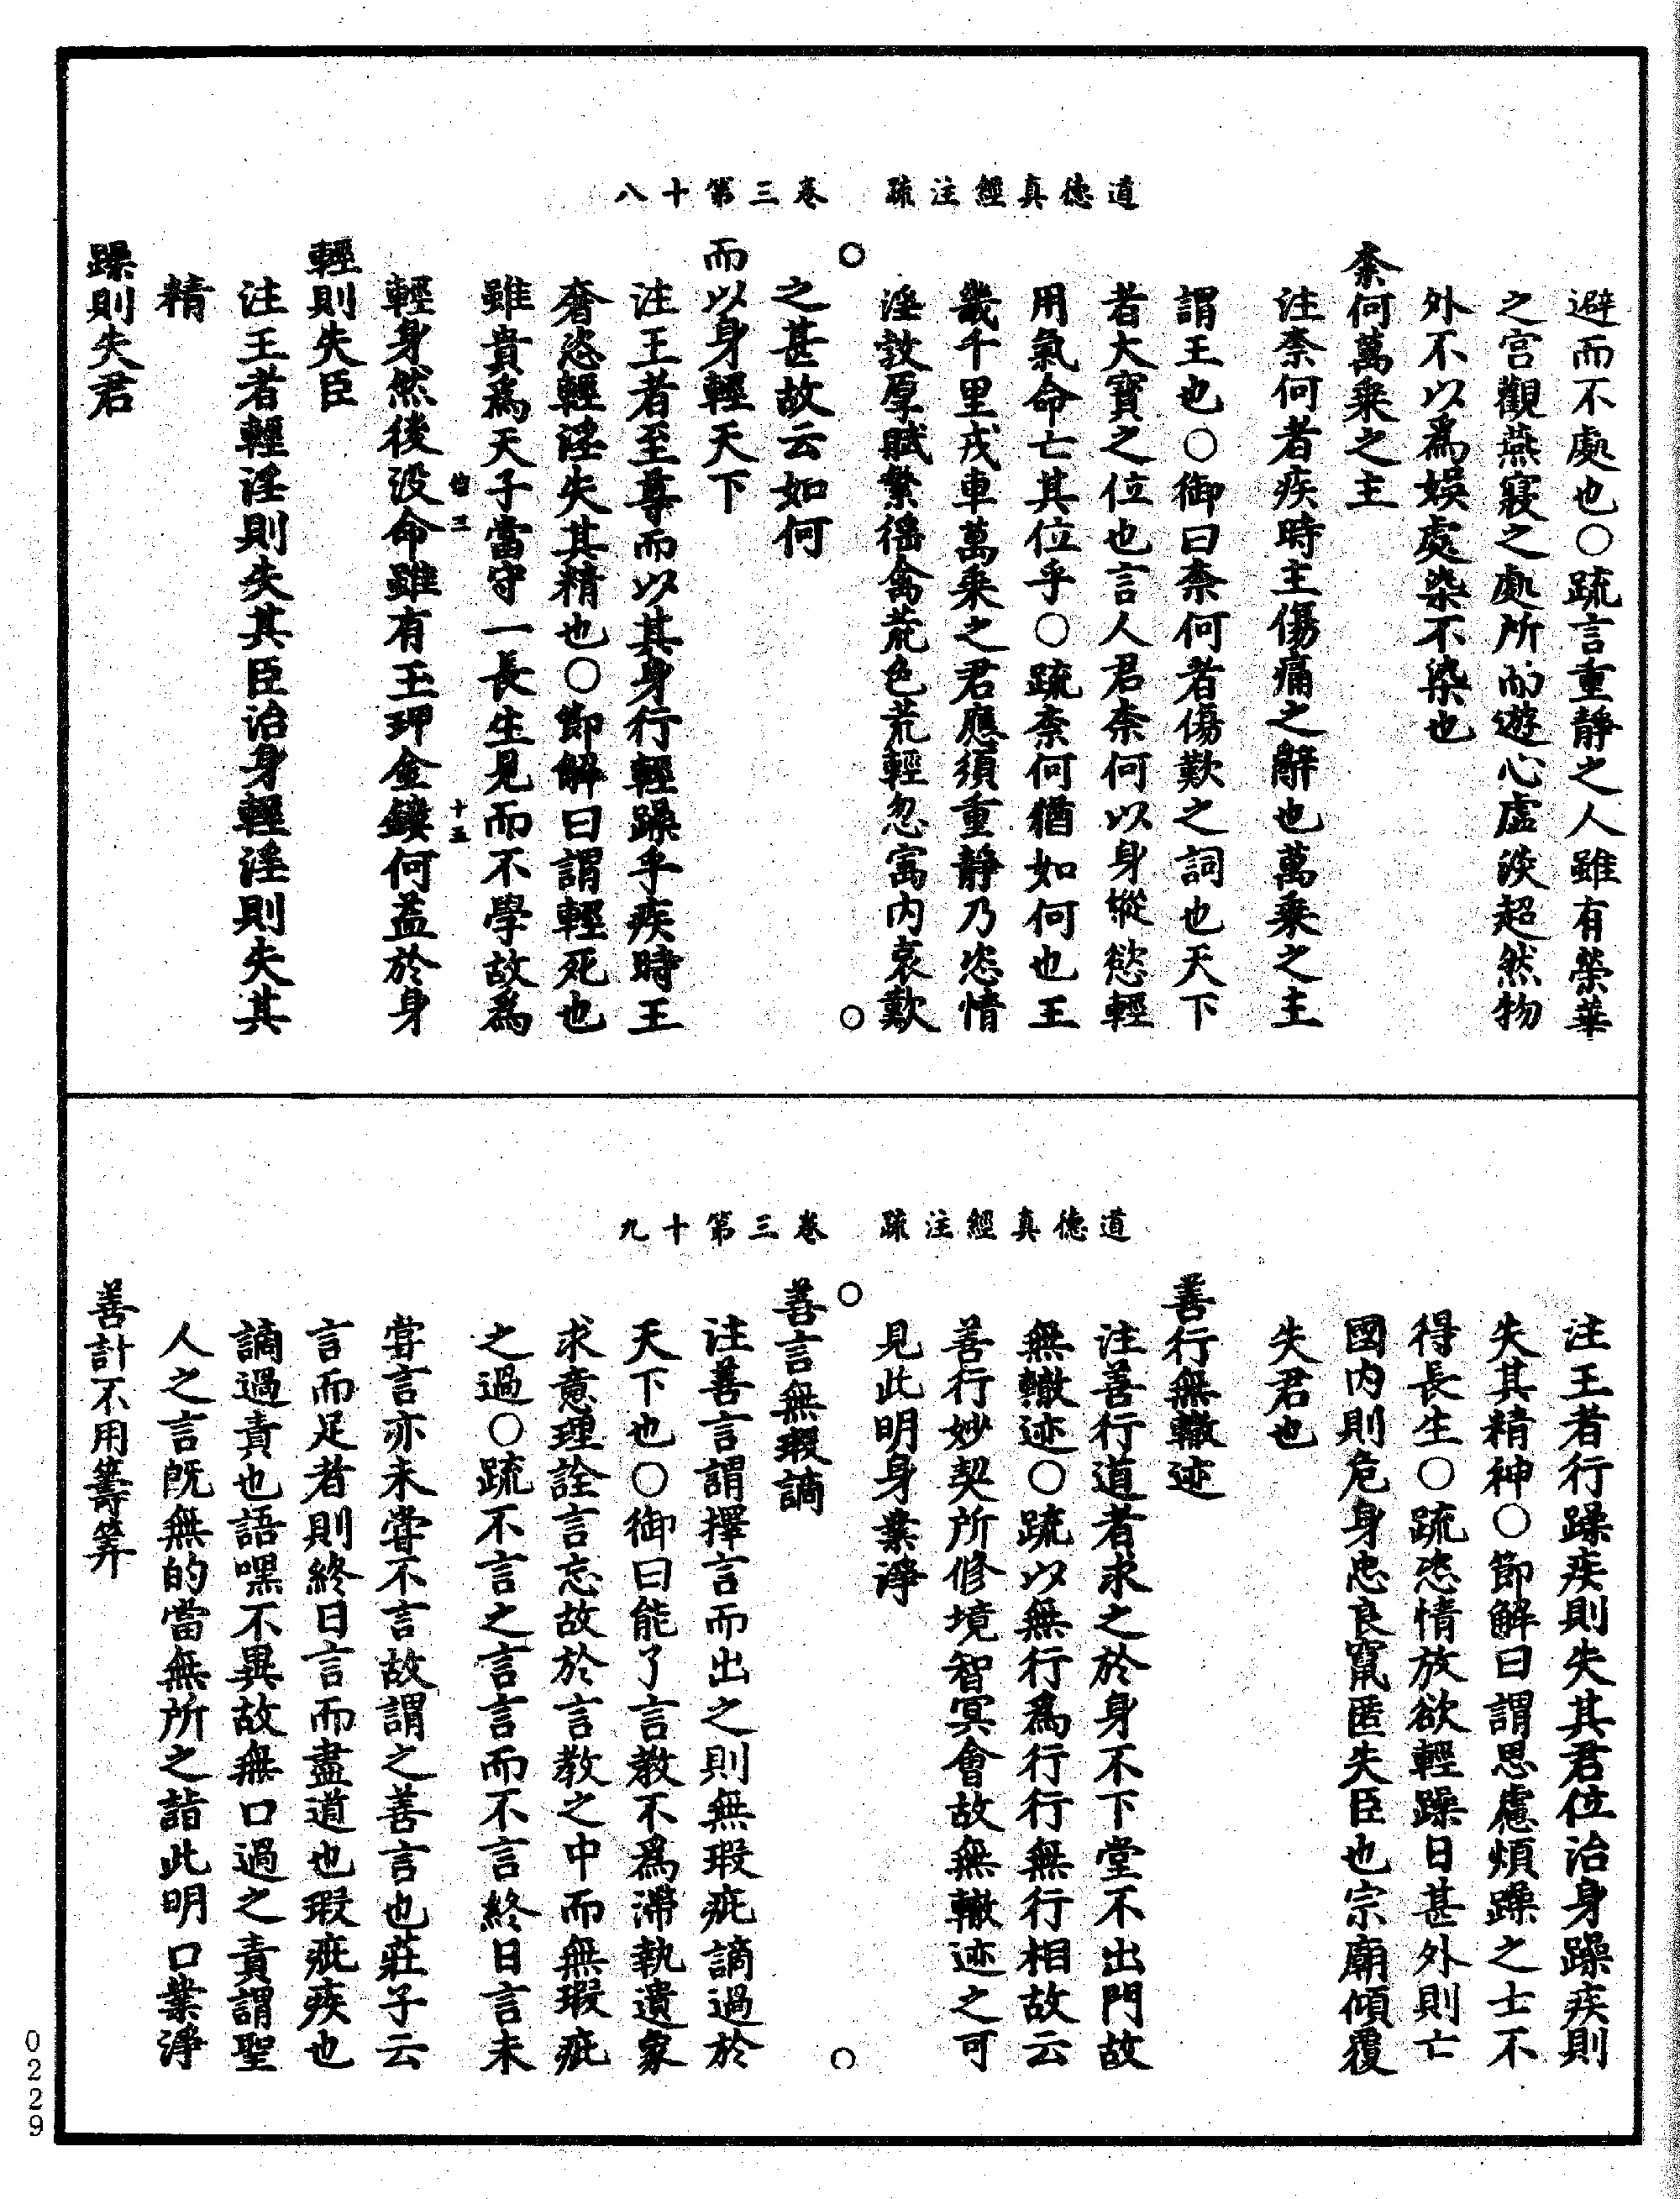 道德真經注疏　卷三第十八
避而不處也○疏言重靜之人雖有榮華
之宮觀燕寢之處所而遊心虛淡超然物
外不以爲娛處染不染也
柰何萬乘之主
注柰何者疾時主傷痛之辭也萬乘之主
謂王也○御曰柰何者傷歎之詞也天下
者大寶之位也言人君柰何以身縱慾輕
用氣命亡其位乎○疏柰何猶如何也王
畿千里戎車萬乘之君應須重靜乃恣情
淫敦厚賦繁徭禽荒色荒輕忽寓内哀歎
之甚故云如何
而以身輕天下
注王者至尊而以其身行輕躁乎疾時王
奢恣輕淫失其精也○節解曰謂輕死也
雖貴爲天子當守一長生見而不學故爲
三
十五
輕身然後沒命雖有玉玾金鏤何益於身
輕則失臣
注王者輕淫則失其臣治身輕淫則失其
精
躁則失君
道德真經注疏　卷三第十九
注王者行躁疾則失其君位治身躁疾則
失其精神○節解曰謂思慮煩躁之士不
得長生○疏恣情放欲輕躁日甚外則亡
國内則危身忠良竄匿失臣也宗廟傾覆
失君也
善行無轍迹
注善行道者求之於身不下堂不出門故
無轍迹○疏以無行爲行行無行相故云
善行妙契所修境智冥會故無轍迹之可
見此明身業淨
善言無瑕讁
注善言謂擇言而出之則無瑕疵讁過於
天下也○御曰能了言教不爲滯執遺象
求意理詮言忘故於言教之中而無瑕疵
之過○疏不言之言言而不言終日言未
甞言亦未甞不言故謂之善言也莊子云
言而足者則終日言而盡道也瑕疵疾也
讁過責也語嘿不異故無口過之責謂聖
人之言旣無的當無所之詣此明口業淨
善計不用籌筭
0229